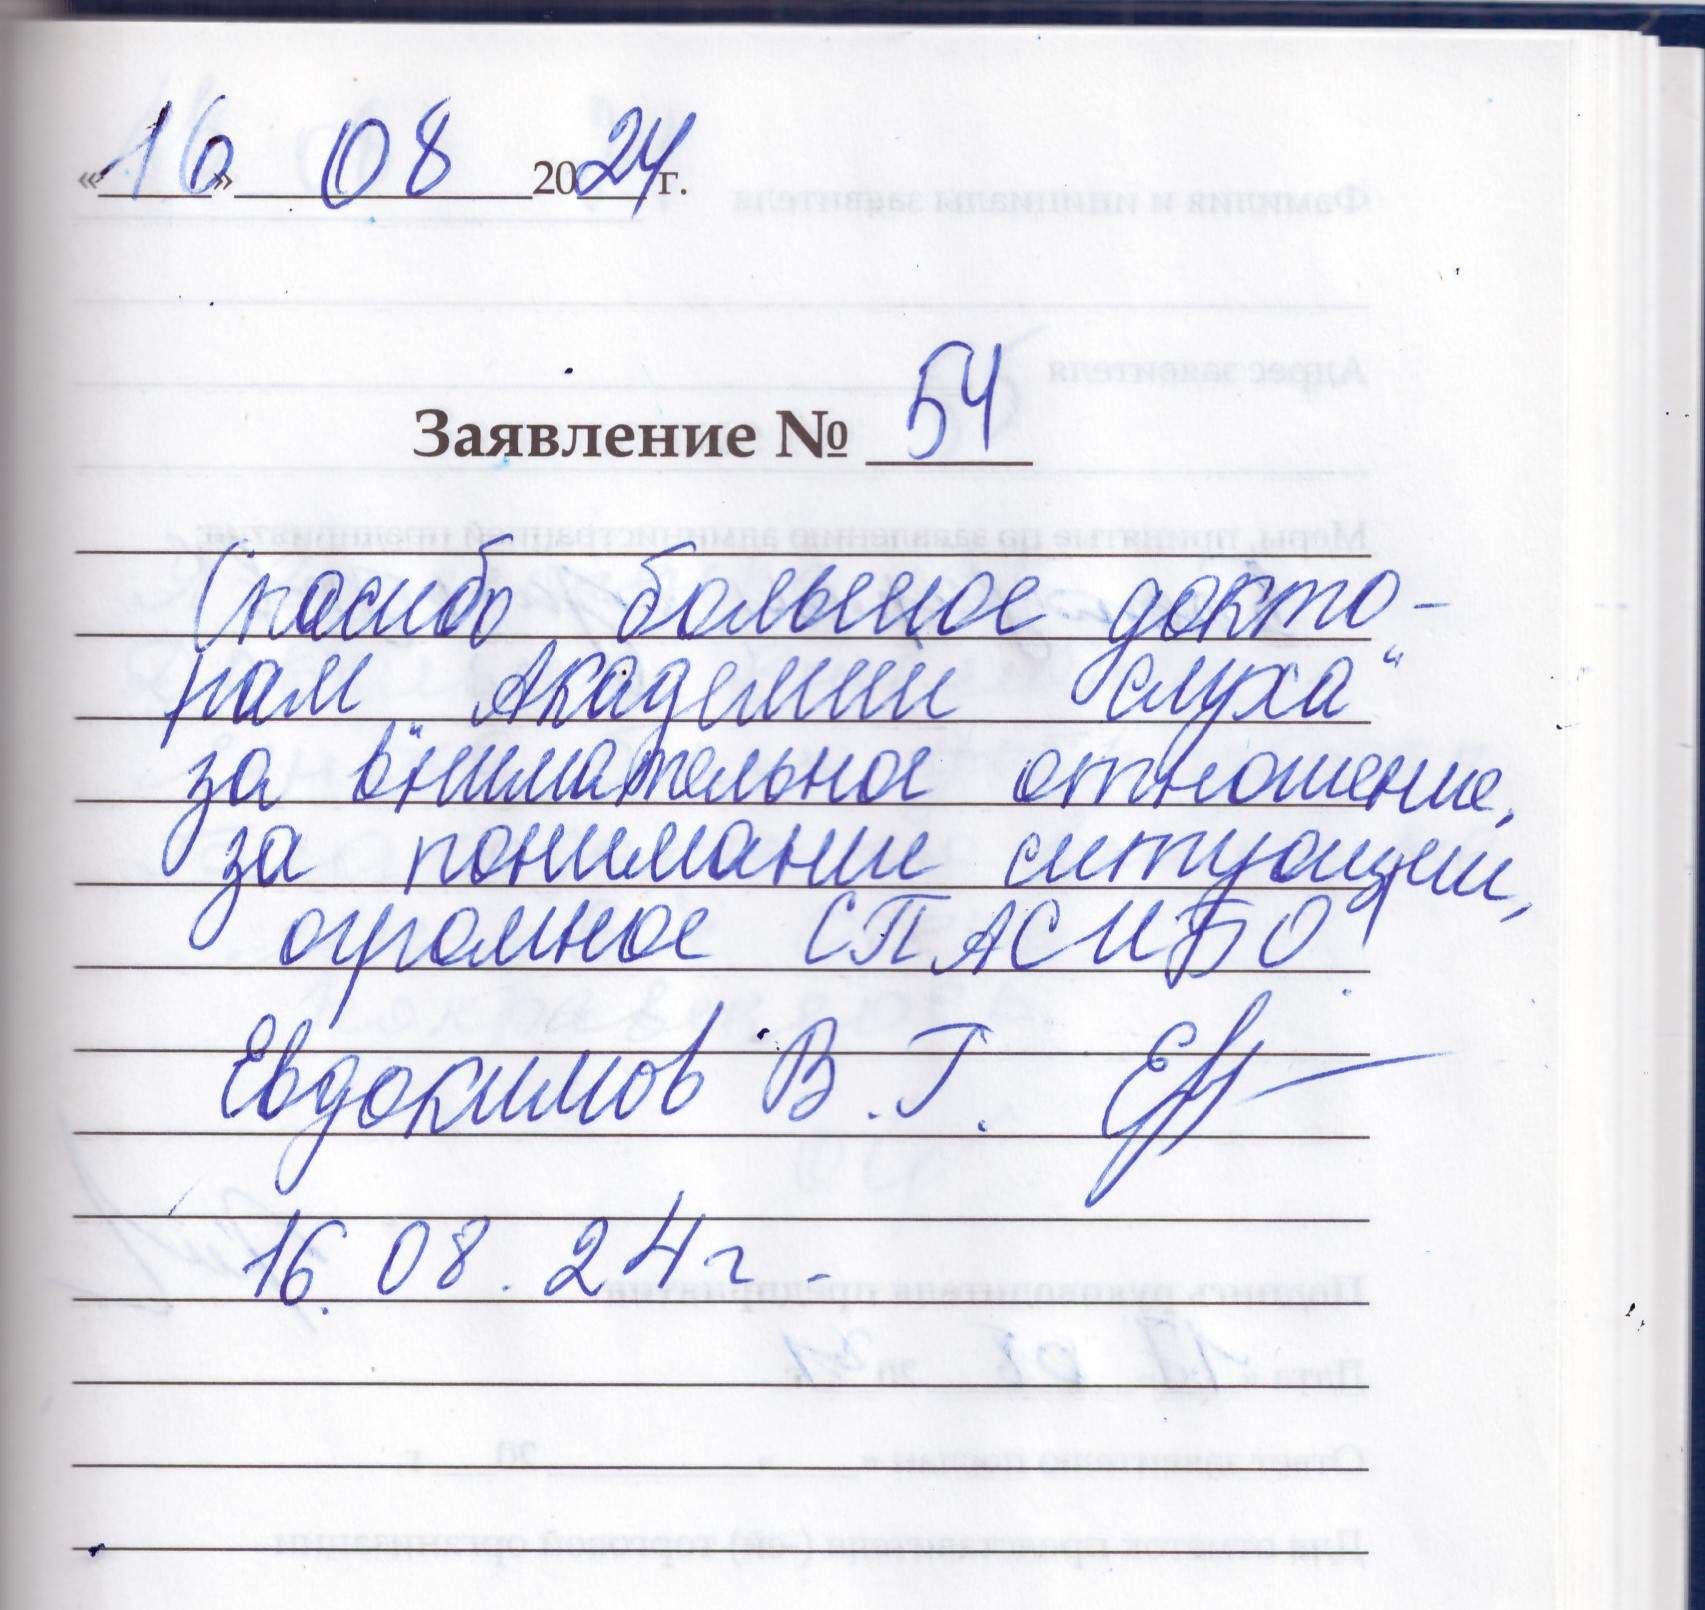 «16» 08 2024 г.
Заявление № 54
Спасибо большое докто-
рам „Академии слуха“
за внимательное отношение,
за понимание ситуации,
огромное СПАСИБО!
Евдокимов В. Г.
16.08.24г.